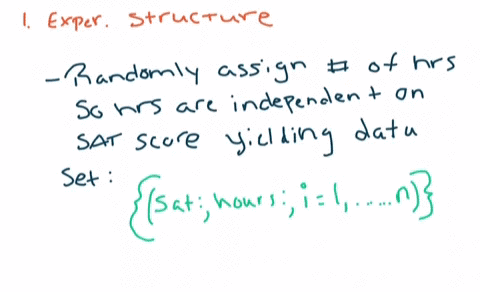 1. Exper. Structure
- Randomly assign # of hrs
So hrs are independent on
SAT score yielding data
Set :
{(Satᵢ, hoursᵢ, i = 1, ..... n)}